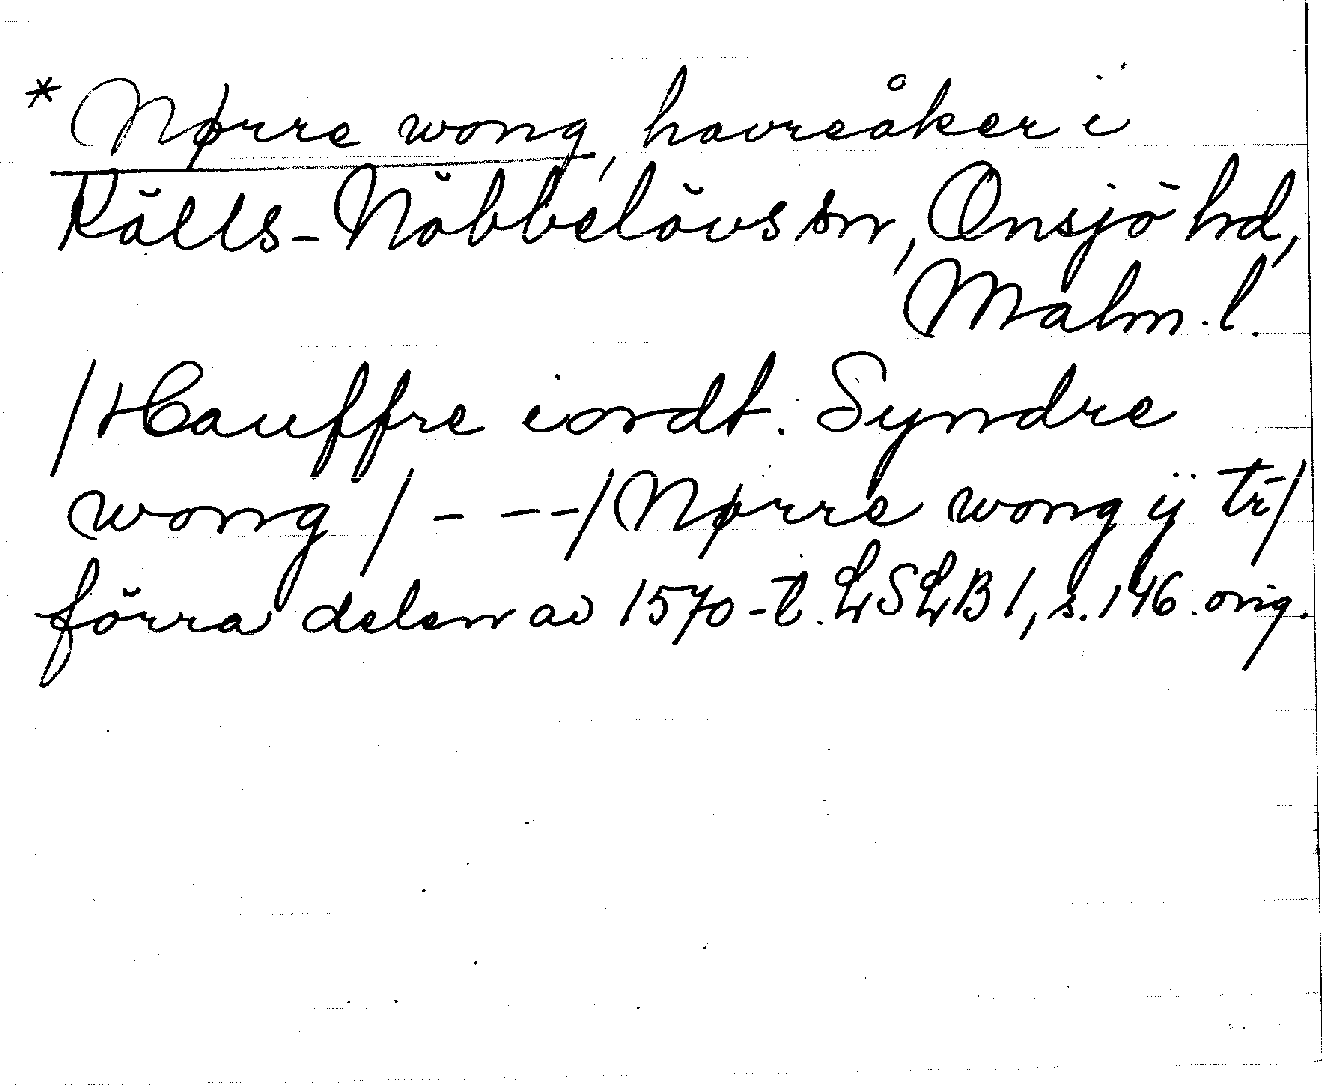 * Nørre wong, havreåker i
Källs-Nöbbelövs sn, Onsjö hd,
Malm. l.
/Hauffre iordt. Syndre
wong / - - - / Nørre wong ÿ tr/
förra delen av 1570-t. LSLB 1, s. 146. orig.